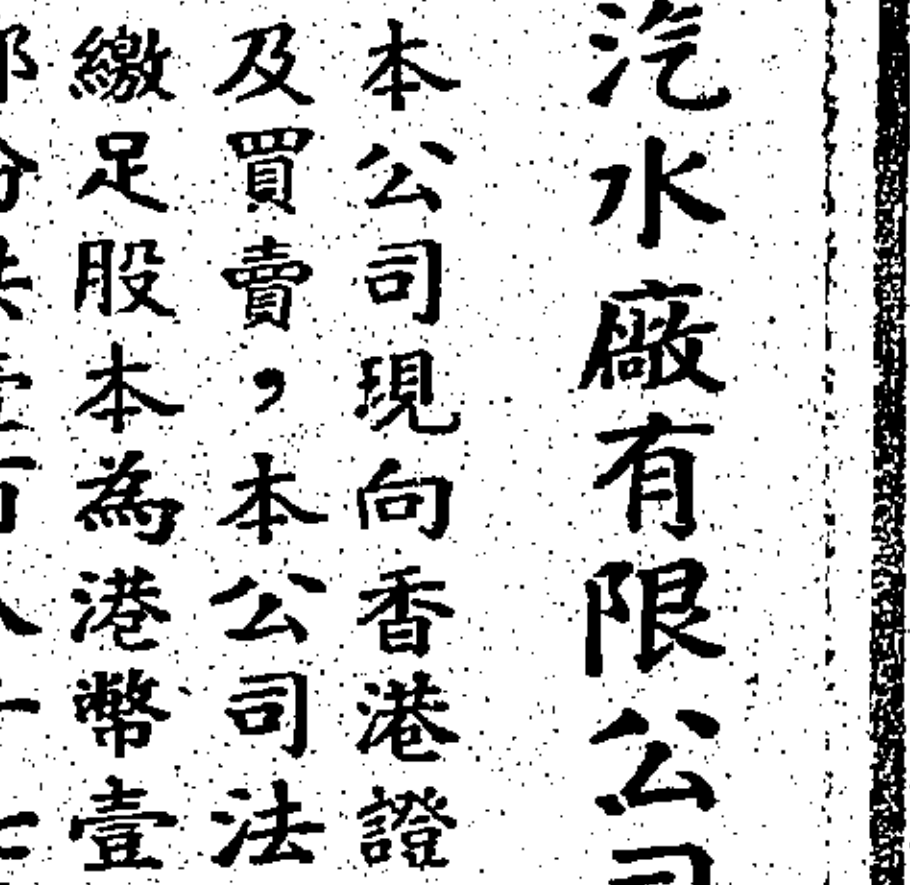 汽水廠有限公司
本公司現向香港證
及買賣，本公司法
繳足股本為港幣壹